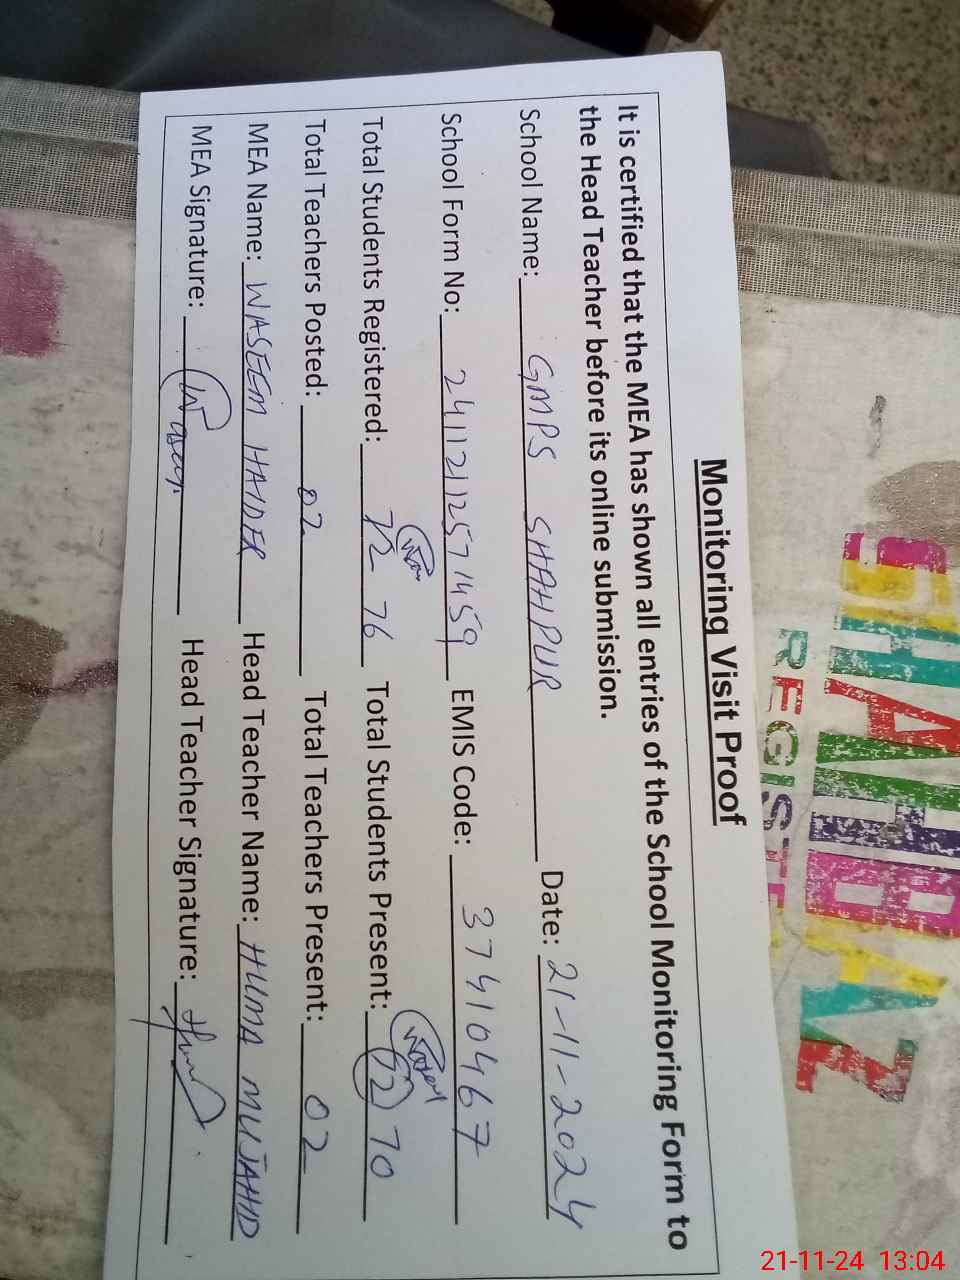 Monitoring Visit Proof
It is certified that the MEA has shown all entries of the School Monitoring Form to
the Head Teacher before its online submission.
School Name: GMPS SHAHPUR Date: 21-11-2024
School Form No: 24112112571459 EMIS Code: 37410467
Total Students Registered: 72 76 Total Students Present: 72 70
Total Teachers Posted: 02 Total Teachers Present: 02
MEA Name: WASEEM HAIDER Head Teacher Name: HUMA MUJAHID
MEA Signature: Waseem Head Teacher Signature:
SHAHBAZ
REGISTER
21-11-24 13:04